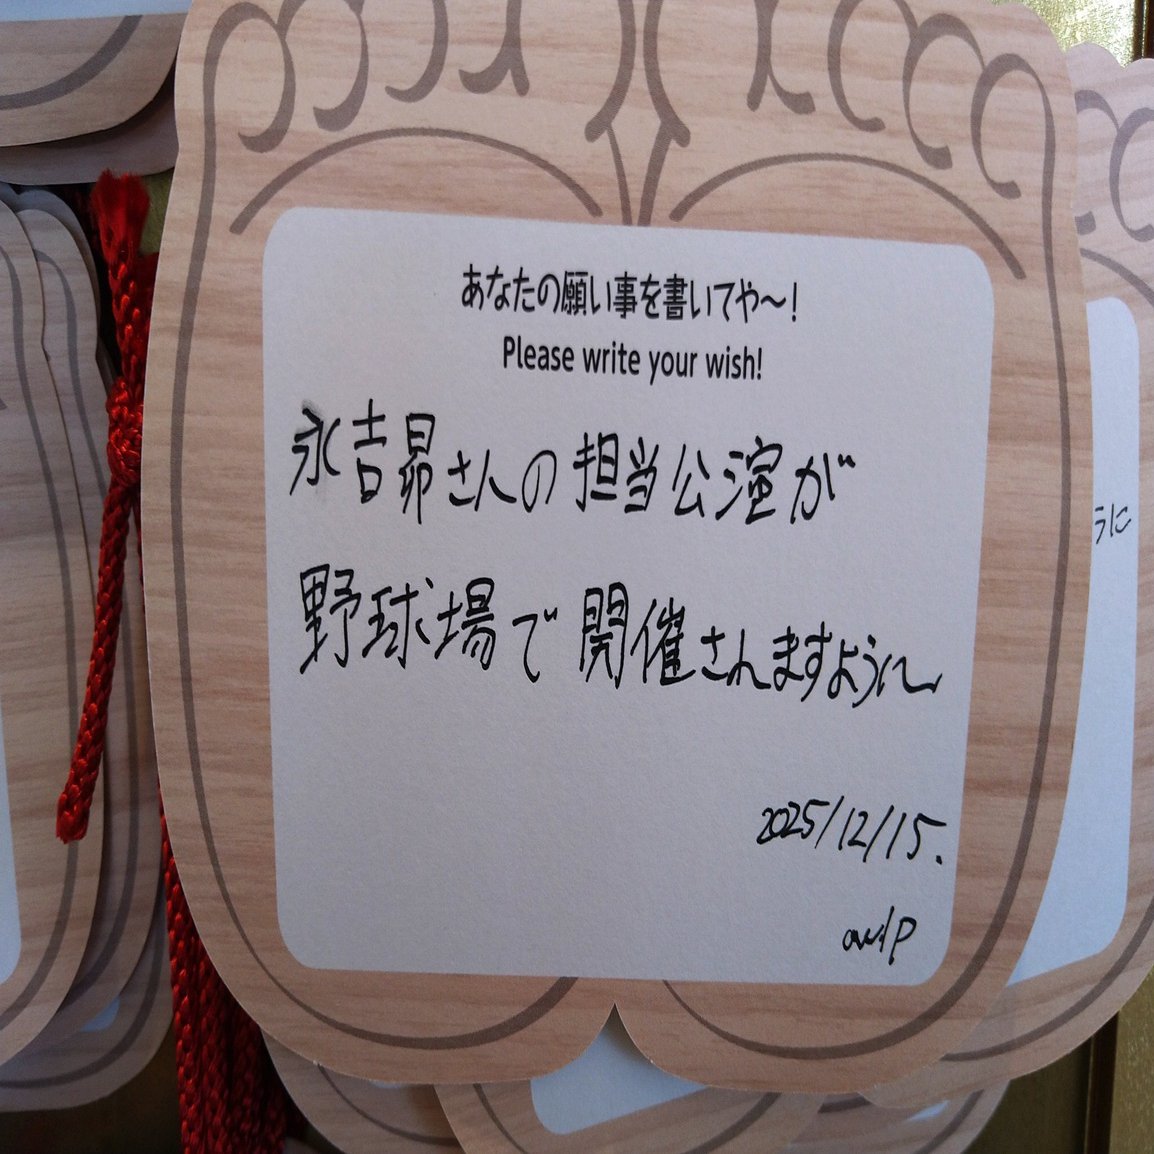 あなたの願い事を書いてや〜!
Please write your wish!
永吉昴さんの担当公演が
野球場で開催されますように
2025/12/15.
うに